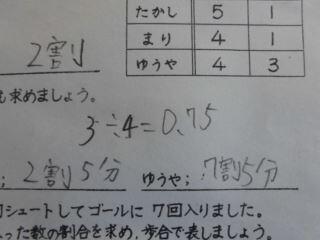 たかし 5 1
まり 4 1
ゆうや 4 3
2割
求めましょう。
3÷4=0.75
; 2割5分 ゆうや; 7割5分
シュートしてゴールに 7回入りました。
った数の割合を求め、歩合で表しましょう。